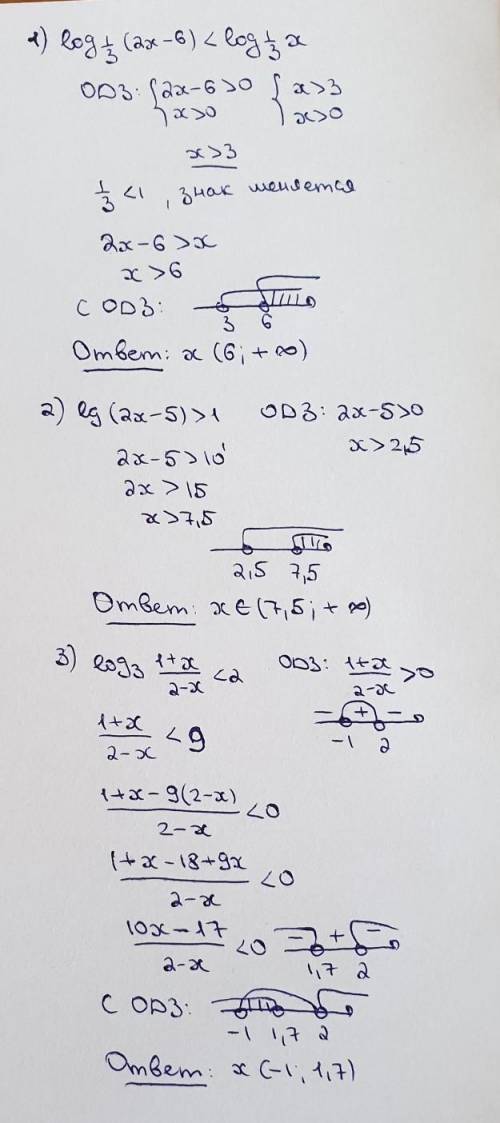 1) log⅓ (2x-6) < log⅓ x
ОДЗ: {2x-6>0 {x>3
{x>0 {x>0
x>3
1/3 <1, знак меняется
2x-6>x
x>6
С ОДЗ:
3 6
Ответ: x (6; +∞)
2) lg (2x-5)>1 ОДЗ: 2x-5>0
2x-5>10¹ x>2,5
2x>15
x>7,5
2,5 7,5
Ответ: x∈(7,5; +∞)
3) log₃ (1+x)/(2-x) <2 ОДЗ: (1+x)/(2-x) >0
- + -
-1 2
(1+x)/(2-x) < 9
(1+x-9(2-x))/(2-x) <0
(1+x-18+9x)/(2-x) <0
(10x-17)/(2-x) <0 - + -
1,7 2
С ОДЗ:
-1 1,7 2
Ответ: x (-1; 1,7)